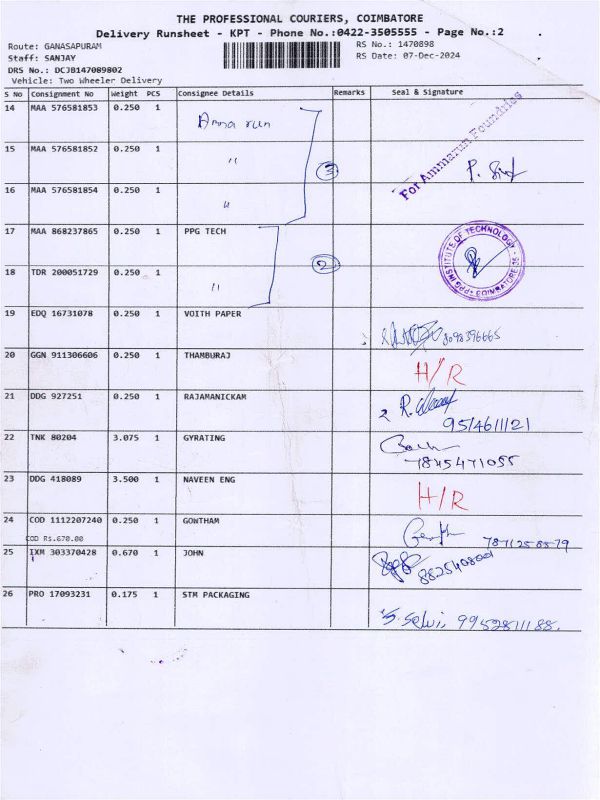 THE PROFESSIONAL COURIERS, COIMBATORE
Delivery Runsheet - KPT - Phone No.:0422-3505555 - Page No.:2
Route: GANASAPURAM
RS No.: 1470898
Staff: SANJAY
RS Date: 07-Dec-2024
DRS No.: DCJB147089802
Vehicle: Two Wheeler Delivery
S No Consignment No Weight PCS Consignee Details Remarks Seal & Signature
14 MAA 576581853 0.250 1 Amma run
For Ammarun Foundries
15 MAA 576581852 0.250 1 "
3
16 MAA 576581854 0.250 1 "
17 MAA 868237865 0.250 1 PPG TECH
2
INSTITUTE OF TECHNOLOGY
COIMBATORE
18 TDR 200051729 0.250 1 "
19 EDQ 16731078 0.250 1 VOITH PAPER
8098396665
20 GGN 911306606 0.250 1 THAMBURAJ H/R
21 DDG 927251 0.250 1 RAJAMANICKAM
22 TNK 80204 3.075 1 GYRATING
7845471055
23 DDG 418089 3.500 1 NAVEEN ENG H/R
24 COD 1112207240 0.250 1 GOWTHAM
COD Rs.670.00
25 IXM 303370428 0.670 1 JOHN
26 PRO 17093231 0.175 1 STM PACKAGING
S. Selvi,